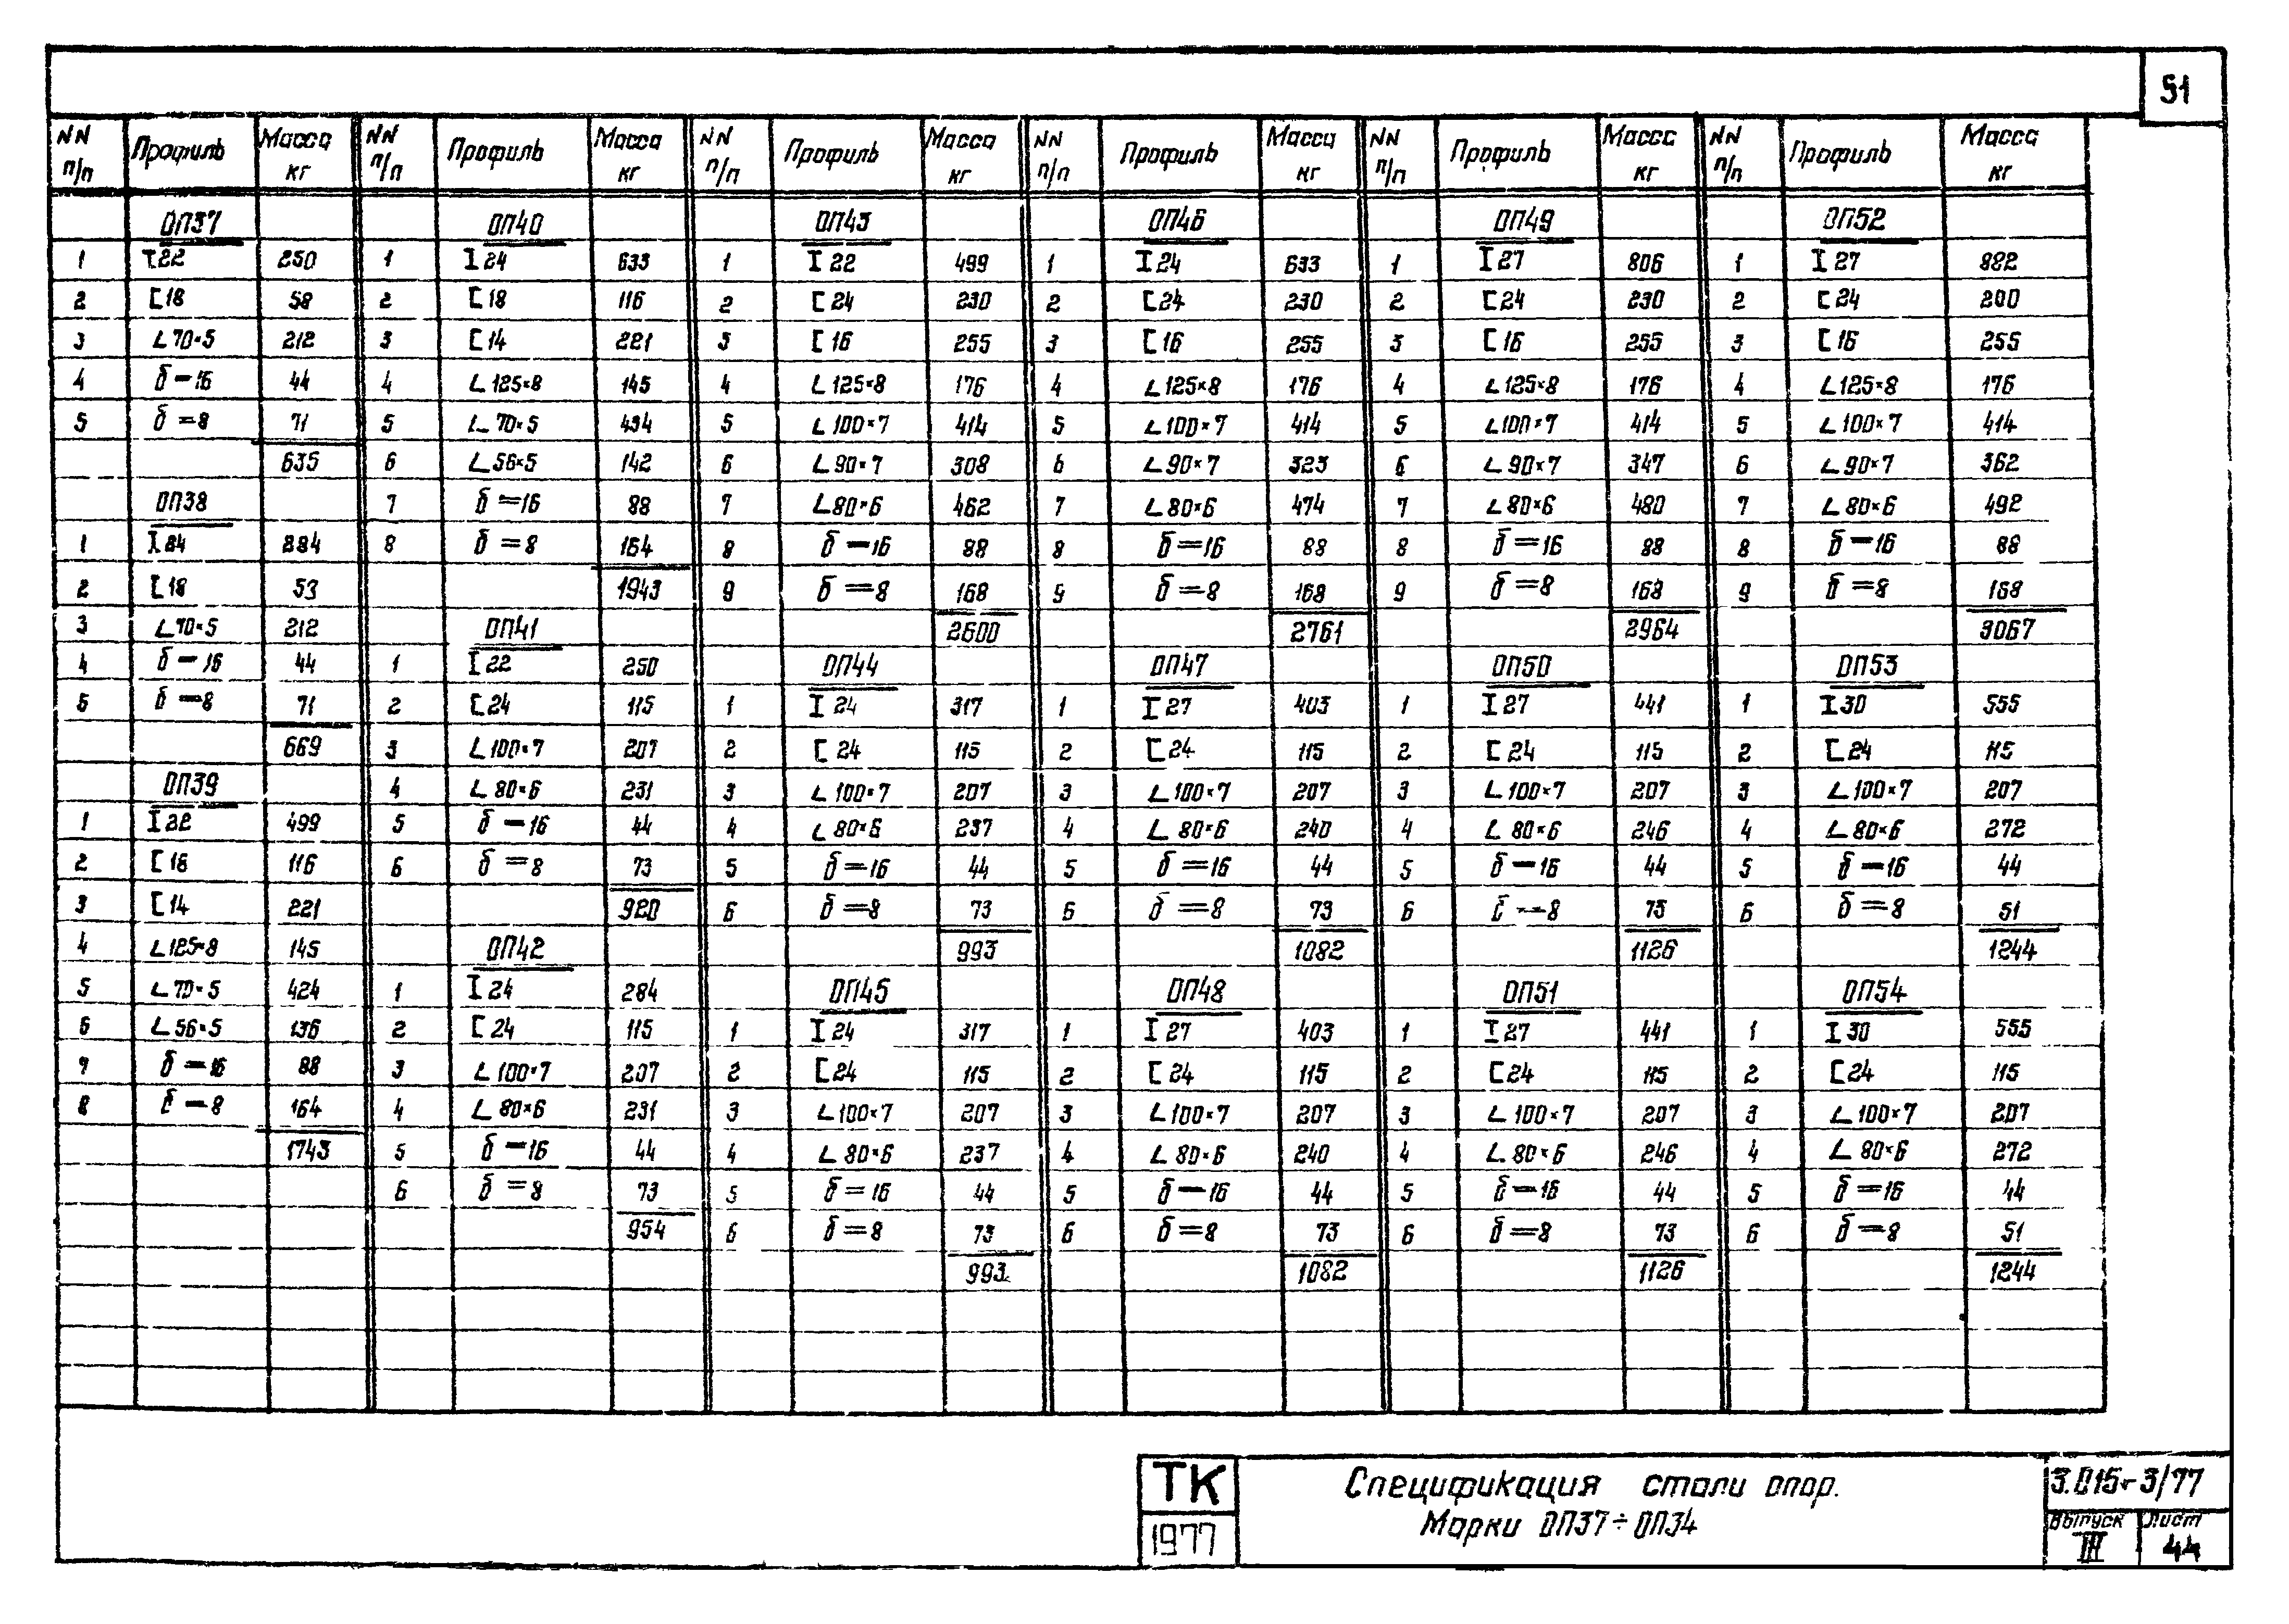 51
NN п/п Профиль Масса кг NN п/п Профиль Масса кг NN п/п Профиль Масса кг NN п/п Профиль Масса кг NN п/п Профиль Масса кг NN п/п Профиль Масса кг
ОП37
1 I 22 250
2 [ 18 58
3 L 70×5 212
4 δ = 16 44
5 δ = 8 71
635
ОП38
1 I 24 284
2 [ 18 53
3 L 70×5 212
4 δ = 16 44
5 δ = 8 71
669
ОП39
1 I 22 499
2 [ 18 116
3 [ 14 221
4 L 125×8 145
5 L 70×5 424
6 L 56×5 136
7 δ = 16 88
8 δ = 8 164
1743
ОП40
1 I 24 633
2 [ 18 116
3 [ 14 221
4 L 125×8 145
5 L 70×5 434
6 L 56×5 142
7 δ = 16 88
8 δ = 8 164
1943
ОП41
1 I 22 250
2 [ 24 115
3 L 100×7 207
4 L 80×6 231
5 δ = 16 44
6 δ = 8 73
920
ОП42
1 I 24 284
2 [ 24 115
3 L 100×7 207
4 L 80×6 231
5 δ = 16 44
6 δ = 8 73
954
ОП43
1 I 22 499
2 [ 24 230
3 [ 16 255
4 L 125×8 176
5 L 100×7 414
6 L 90×7 308
7 L 80×6 462
8 δ = 16 88
9 δ = 8 168
2600
ОП44
1 I 24 317
2 [ 24 115
3 L 100×7 207
4 L 80×6 237
5 δ = 16 44
6 δ = 8 73
993
ОП45
1 I 24 317
2 [ 24 115
3 L 100×7 207
4 L 80×6 237
5 δ = 16 44
6 δ = 8 73
993
ОП46
1 I 24 633
2 [ 24 230
3 [ 16 255
4 L 125×8 176
5 L 100×7 414
6 L 90×7 323
7 L 80×6 474
8 δ = 16 88
9 δ = 8 168
2761
ОП47
1 I 27 403
2 [ 24 115
3 L 100×7 207
4 L 80×6 240
5 δ = 16 44
6 δ = 8 73
1082
ОП48
1 I 27 403
2 [ 24 115
3 L 100×7 207
4 L 80×6 240
5 δ = 16 44
6 δ = 8 73
1082
ОП49
1 I 27 806
2 [ 24 230
3 [ 16 255
4 L 125×8 176
5 L 100×7 414
6 L 90×7 347
7 L 80×6 480
8 δ = 16 88
9 δ = 8 168
2964
ОП50
1 I 27 441
2 [ 24 115
3 L 100×7 207
4 L 80×6 246
5 δ = 16 44
6 δ = 8 73
1126
ОП51
1 I 27 441
2 [ 24 115
3 L 100×7 207
4 L 80×6 246
5 δ = 16 44
6 δ = 8 73
1126
ОП52
1 I 27 882
2 [ 24
3 [ 16 255
4 L 125×8 176
5 L 100×7 414
6 L 90×7 362
7 L 80×6 492
8 δ = 16 88
9 δ = 8 168
3067
ОП53
1 I 30 555
2 [ 24 115
3 L 100×7 207
4 L 80×6 272
5 δ = 16 44
6 δ = 8 51
1244
ОП54
1 I 30 555
2 [ 24 115
3 L 100×7 207
4 L 80×6 272
5 δ = 16 44
6 δ = 8 51
1244
ТК
1977
Спецификация стали опор.
Марки ОП37÷ОП34
3.015-3/77
Выпуск III
Лист 44